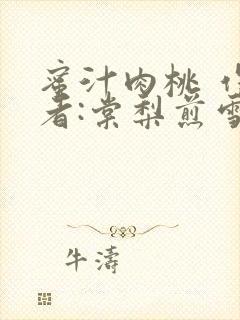 蜜汁肉桃 作
者:棠梨煎雪
牛濤